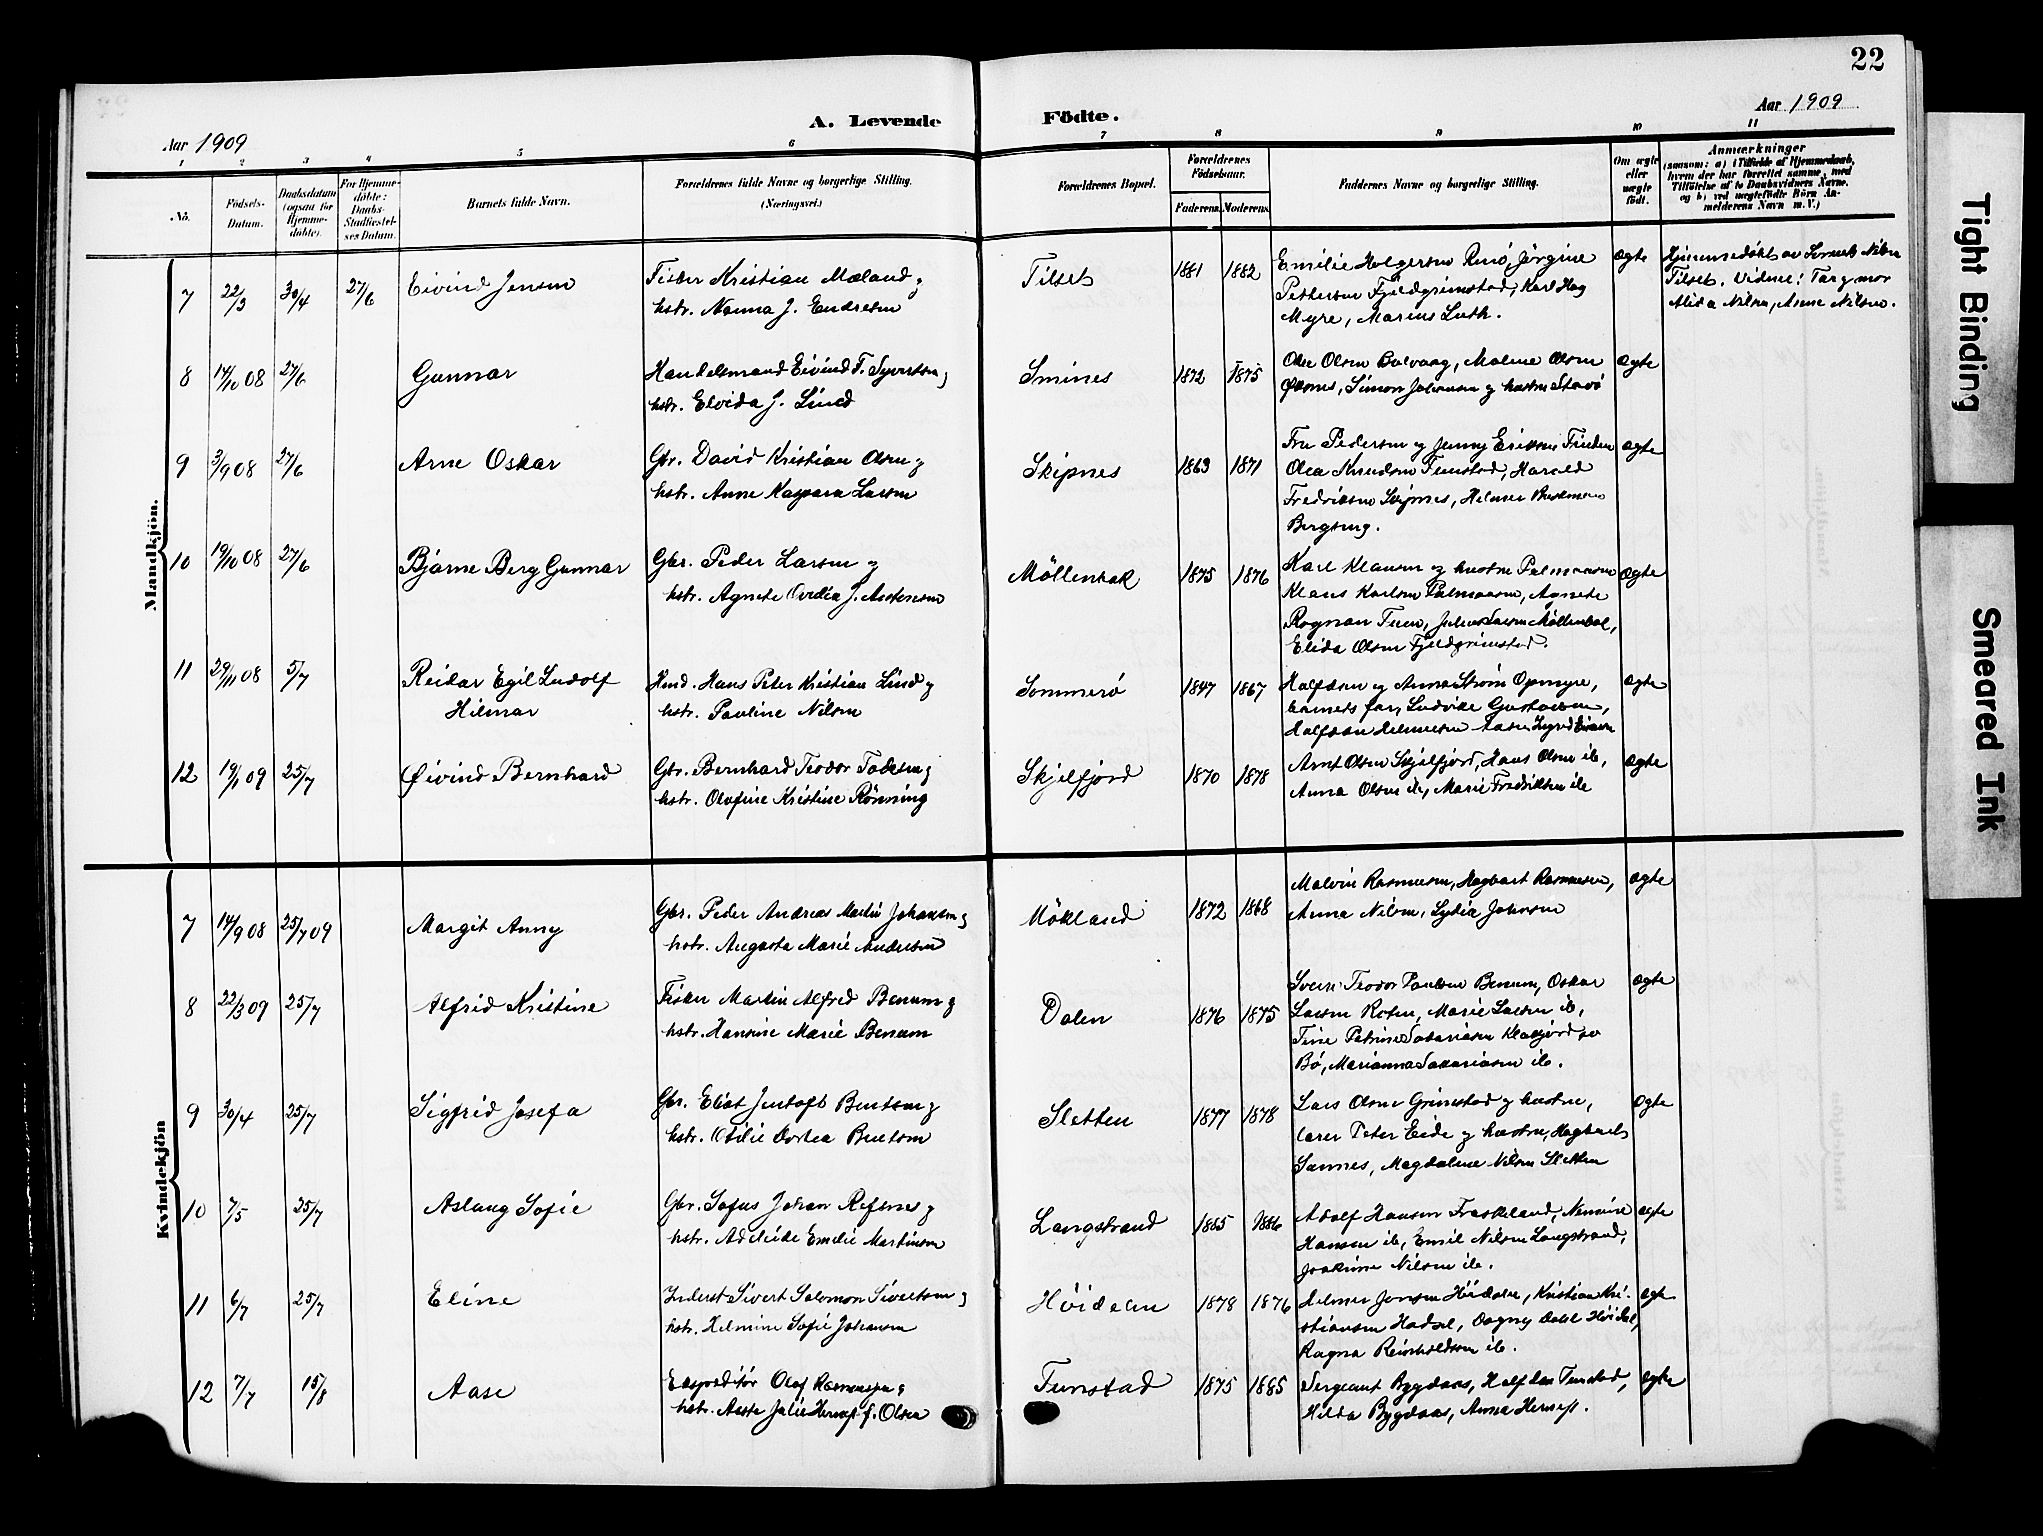 22
Aar 1909
A. Levende
Födte.
Aar 1909
1 2 3 4 5 6 7 8 9 10 11
No.
Födsels-Datum.
Daabsdatum (ogsaa for Hjemme-döbte).
For Hjemme-döbte: Daabs-Stadfæstel-ses Datum.
Barnets fulde Navn.
Forældrenes fulde Navne og borgerlige Stilling.
(Næringsvei.)
Forældrenes Bopæl.
Forældrenes Födselsaar.
Faderens. Moderens.
Faddernes Navne og borgerlige Stilling.
Om ægte eller uægte födt.
Anmærkninger
(saasom: a) i Tilfælde af Hjemmedaab,
hvem der har forrettet samme, med
Tilföielse af to Daabsvidners Navne.
og b) ved uægtefödte Börn An-
melderens Navn m. V.)
Mandkjön.
7 22/3 30/4 27/6 Eivind Jensen
Fisker Kristian Mæland og
hstr. Nanna J. Endresen
Tilset 1881 1882
Emilie Holgersen Rinö, Jörgine
Pettersen Fjeldgrimstad, Karl Hag
Myre, Marius Luth.
ægte
Hjemmedøbt av Nilsen
Tilset. Vidner:
Alida Nilsen, Arne Nilsen.
8 14/10 08 27/6 Gunnar
Handelsmand Eivind F. Syvertsen og
hstr. Elvida J. Lind
Smines 1872 1875
Olsen Malene Olsen
Simon Johansen og hustru Stavö
ægte
9 3/9 08 27/6 Arne Oskar
Gbr. David Kristian Olsen og
hstr. Anne Kaspara Larsen
Skipnes 1863 1871
Fru Pedersen og Jenny Eriksen
Olea Knudsen Tunstad, Harald
Fredriksen Skipnes, Helmer
ægte
10 19/10 08 27/6 Bjarne Berg Gunnar
Gbr. Peder Larsen og
hstr. Agnete Ovidia J. Andersen
Möllenbak 1875 1876
Karl Klausen og hustru
Klaus Karlsen Agnete
Rognan
Elida Olsen Fjeldgrimstad.
ægte
11 29/11 08 5/7 Reidar Egil Ludolf
Hilmar
Hmd. Hans Peter Kristian Lind og
hstr. Pauline Nilsen
Sommerö 1847 1867
Halfdan og Anna Ström Opmyre,
barnets far, Ludvike Gustavsen,
ægte
12 19/1 09 25/7 Øivind Bernhard
Gbr. Bernhard Teodor Todesen og
hstr. Olufine Kristine Rönning
Skjelfjord 1870 1878
Arnt Olsen Skjelfjord, Hans Olsen ib,
Anna Olsen ib, Marie Fredriksen ib
ægte
Kvindekjön
7 14/9 08 25/7 09 Margit Anny
Gbr. Peder Andreas Martin Johansen og
hstr. Augusta Marie Andersen
Mökland 1872 1868
Malvin Rasmussen, Hagbart Rasmussen,
Anna Nilsen, Lydia Johnsen
ægte
8 22/3 09 25/7 Alfrid Kristine
Fisker Martin Alfred Benum og
hstr. Hansine Marie Benum
Dalen 1876 1875
Svein Teodor Paulsen Benum, Oskar
Larsen Marie Larsen ib,
Tine Petrine Sakariasen
Bö, Marianna Sakariasen ib.
ægte
9 30/4 25/7 Sigfrid Josefa
Gbr. Eliot Jentoft Bentsen og
hstr. Otilie Dortea Bentsen
Sletten 1877 1878
Lars Olsen Grimstad og hustru,
lærer Peter Eide og hustru, Hagbart
Sannes, Magdalene Nilsen Sletten
ægte
10 7/5 25/7 Aslaug Sofie
Gbr. Sofus Johan Refsnes og
hstr. Adeleide Emelie Martinsen
Langstrand 1885 1886
Adolf Hansen
Hansen ib, Emil Nilsen Langstrand,
Joakime Nilsen ib.
ægte
11 6/7 25/7 Eline
Inderst Sivert Salomon Sivertsen og
hstr. Helmine Sofie Johansen
Höidalen 1878 1876
Helmer Jensen Höidalen, Kristian Kri-
stiansen Hadsel, Dagny Dahl Höidal,
Ragna Reinholdsen ib.
ægte
12 7/7 15/8 Aase
Expeditör Olaf Rasmussen og
hstr. Aasta Julie f. Olsen
Tunstad 1875 1885
Sergeant Bygdaas, Halfdan Tunstad,
Hilda Bygdaas, Anna
ægte
Tight Binding
Smeared Ink